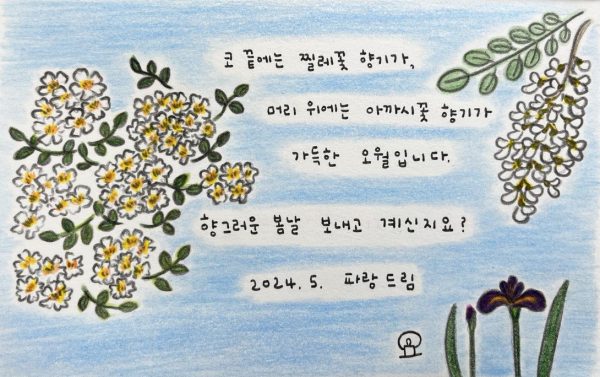 코 끝에는 찔레꽃 향기가,
머리 위에는 아까시꽃 향기가
가득한 오월입니다.
향그러운 봄날 보내고 계신지요?
2024. 5. 파랑 드림